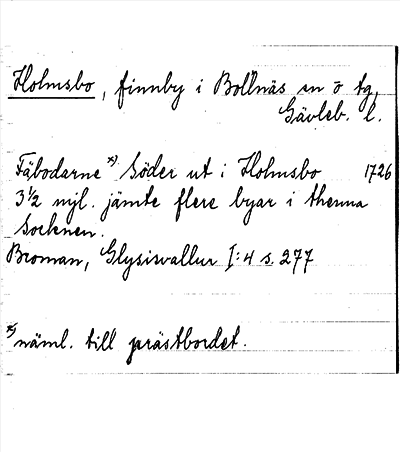 Holmsbo, finnby i Bollnäs sn o tg,
Gävleb. l.
Fäbodarne x) Söder ut i Holmsbo 1726
3½ mjl. jämte flere byar i thenna
Socknen.
Broman, Glysisvallur I:4 s. 277
x) näml. till prästbordet.